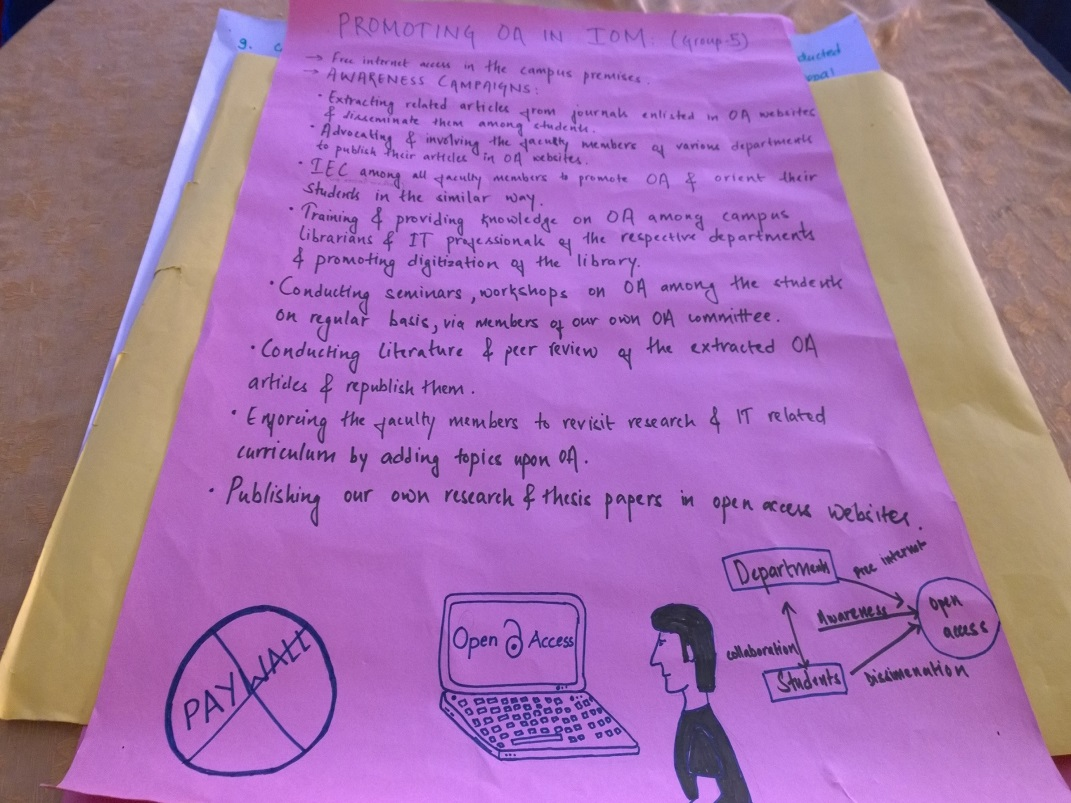 PROMOTING OA IN IOM: (Group-5)
→ Free internet access in the campus premises.
→ AWARENESS CAMPAIGNS:
• Extracting related articles from journals enlisted in OA websites
& disseminate them among students.
• Advocating & involving the faculty members of various departments
to publish their articles in OA websites.
• IEC among all faculty members to promote OA & orient their
students in the similar way.
• Training & providing knowledge on OA among campus
librarians & IT professionals of the respective departments
& promoting digitization of the library.
• Conducting seminars, workshops on OA among the students
on regular basis, via members of our own OA committee.
• Conducting literature & peer review of the extracted OA
articles & republish them.
• Enforcing the faculty members to revisit research & IT related
curriculum by adding topics upon OA.
• Publishing our own research & thesis papers in open access websites.
PAYWALL
Open Access
Departments
free internet
Awareness
open
access
collaboration
Students
Dissimenation
9.
ducted